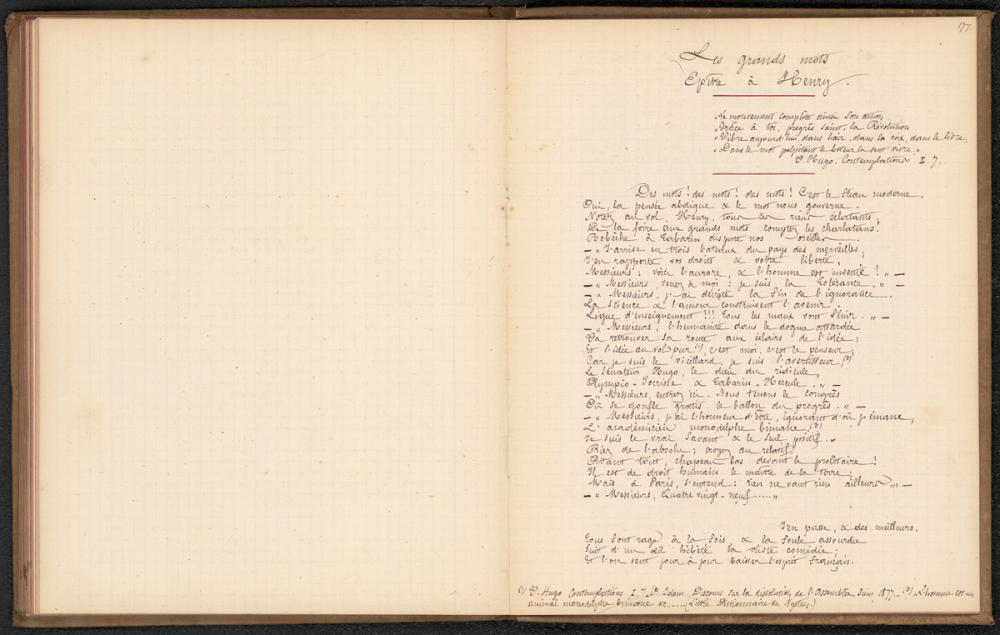 177.
Les grands mots
Epître à Henry.
"Le mouvement complète ainsi son action
"Grâce à toi, progrès saint, la Révolution
"Vibre aujourd'hui dans l'air, dans la voix, dans le livre,
"Dans le mot palpitant le lecteur la sent vivre."
V. Hugo. Contemplations I. 7.
Des mots! des mots! des mots! C'est le fléau moderne.
Oui, la pensée abdique & le mot nous gouverne.
Notez au vol, Henry, tous ces riens éclatants;
De la foire aux grands mots comptez les charlatans.
Bobèche à Tabarin dispute nos oreilles.
— "J'arrive en trois bateaux du pays des merveilles;
J'en rapporte vos droits & votre liberté,
Messieurs: voici l'aurore, & l'homme est inventé!" —
— "Messieurs, venez à moi: je suis la tolérance." —
— "Messieurs, j'ai décrété la fin de l'ignorance.
La science & l'amour construisent l'avenir.
Ligue d'enseignement!!! tous les maux vont finir." —
— "Messieurs, l'humanité dans le dogme attardée
Va retrouver sa route aux éclairs de l'idée;
Et l'idée au vol pur (1), c'est moi, c'est le penseur;
Car je suis le vieillard, je suis l'avertisseur, (2)
Le sénateur Hugo, le dieu du ridicule,
Olympio-Jocrisse & Tabarin-Hercule." —
— "Messieurs, entrez ici. Nous tenons le congrès
Où se gonfle gratis le ballon du progrès." —
— "Messieurs, j'ai l'honneur d'être, ignorant d'où j'émane,
L'académicien monodelphe bimane. (3)
Je suis le vrai savant & le seul positif."
Rien de l'absolu; croyez au relatif!
Avant tout, chapeau bas devant le prolétaire!
Il est de droit humain le maître de la terre;
Mais à Paris, s'entend: rien ne vaut rien ailleurs." —
— "Messieurs, Quatre vingt-neuf......"
J'en passe, & des meilleurs.
Tous font rage à la fois & la foule assourdie
Suit d'un œil hébété la triste comédie;
Et l'on sent jour à jour baisser l'esprit français.
(1) V. Hugo Contemplations I. 7. (2) Idem. Discours sur la dissolution de l'Assemblée Juin 1877. — (3) "L'homme est un
animal monodelphe bimane &c......(Littré Dictionnaire de Nysten.)